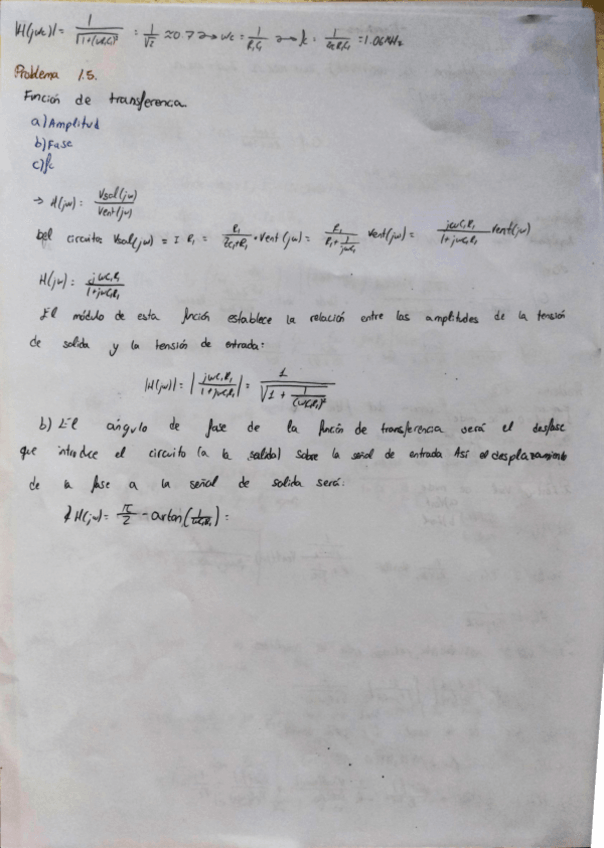 |H(jωc)| = 1/√(1+(ωR₁C₁)²) = 1/√2 ≈ 0.7 → ωc = 1/(R₁C₁) → fc = 1/(2πR₁C₁) = 1.06 MHz
Problema 1.5.
Función de transferencia.
a) Amplitud
b) Fase
c) fc
→ H(jω) = Vsal(jω)/Vent(jω)
Del circuito: Vsal(jω) = I R₁ = R₁/(Zc₁+R₁) · Vent(jω) = R₁/(R₁+1/(jωC₁)) Vent(jω) = jωC₁R₁/(1+jωC₁R₁) Vent(jω)
H(jω) = jωC₁R₁/(1+jωC₁R₁)
El módulo de esta función establece la relación entre las amplitudes de la tensión
de salida y la tensión de entrada:
|H(jω)| = |jωC₁R₁/(1+jωC₁R₁)| = 1/√(1 + 1/(ωC₁R₁)²)
b) El ángulo de fase de la función de transferencia será el desfase
que introduce el circuito (a la salida) sobre la señal de entrada Así el desplazamiento
de la fase a la señal de salida será:
∠H(jω) = π/2 - artan(1/(ωC₁R₁)) =